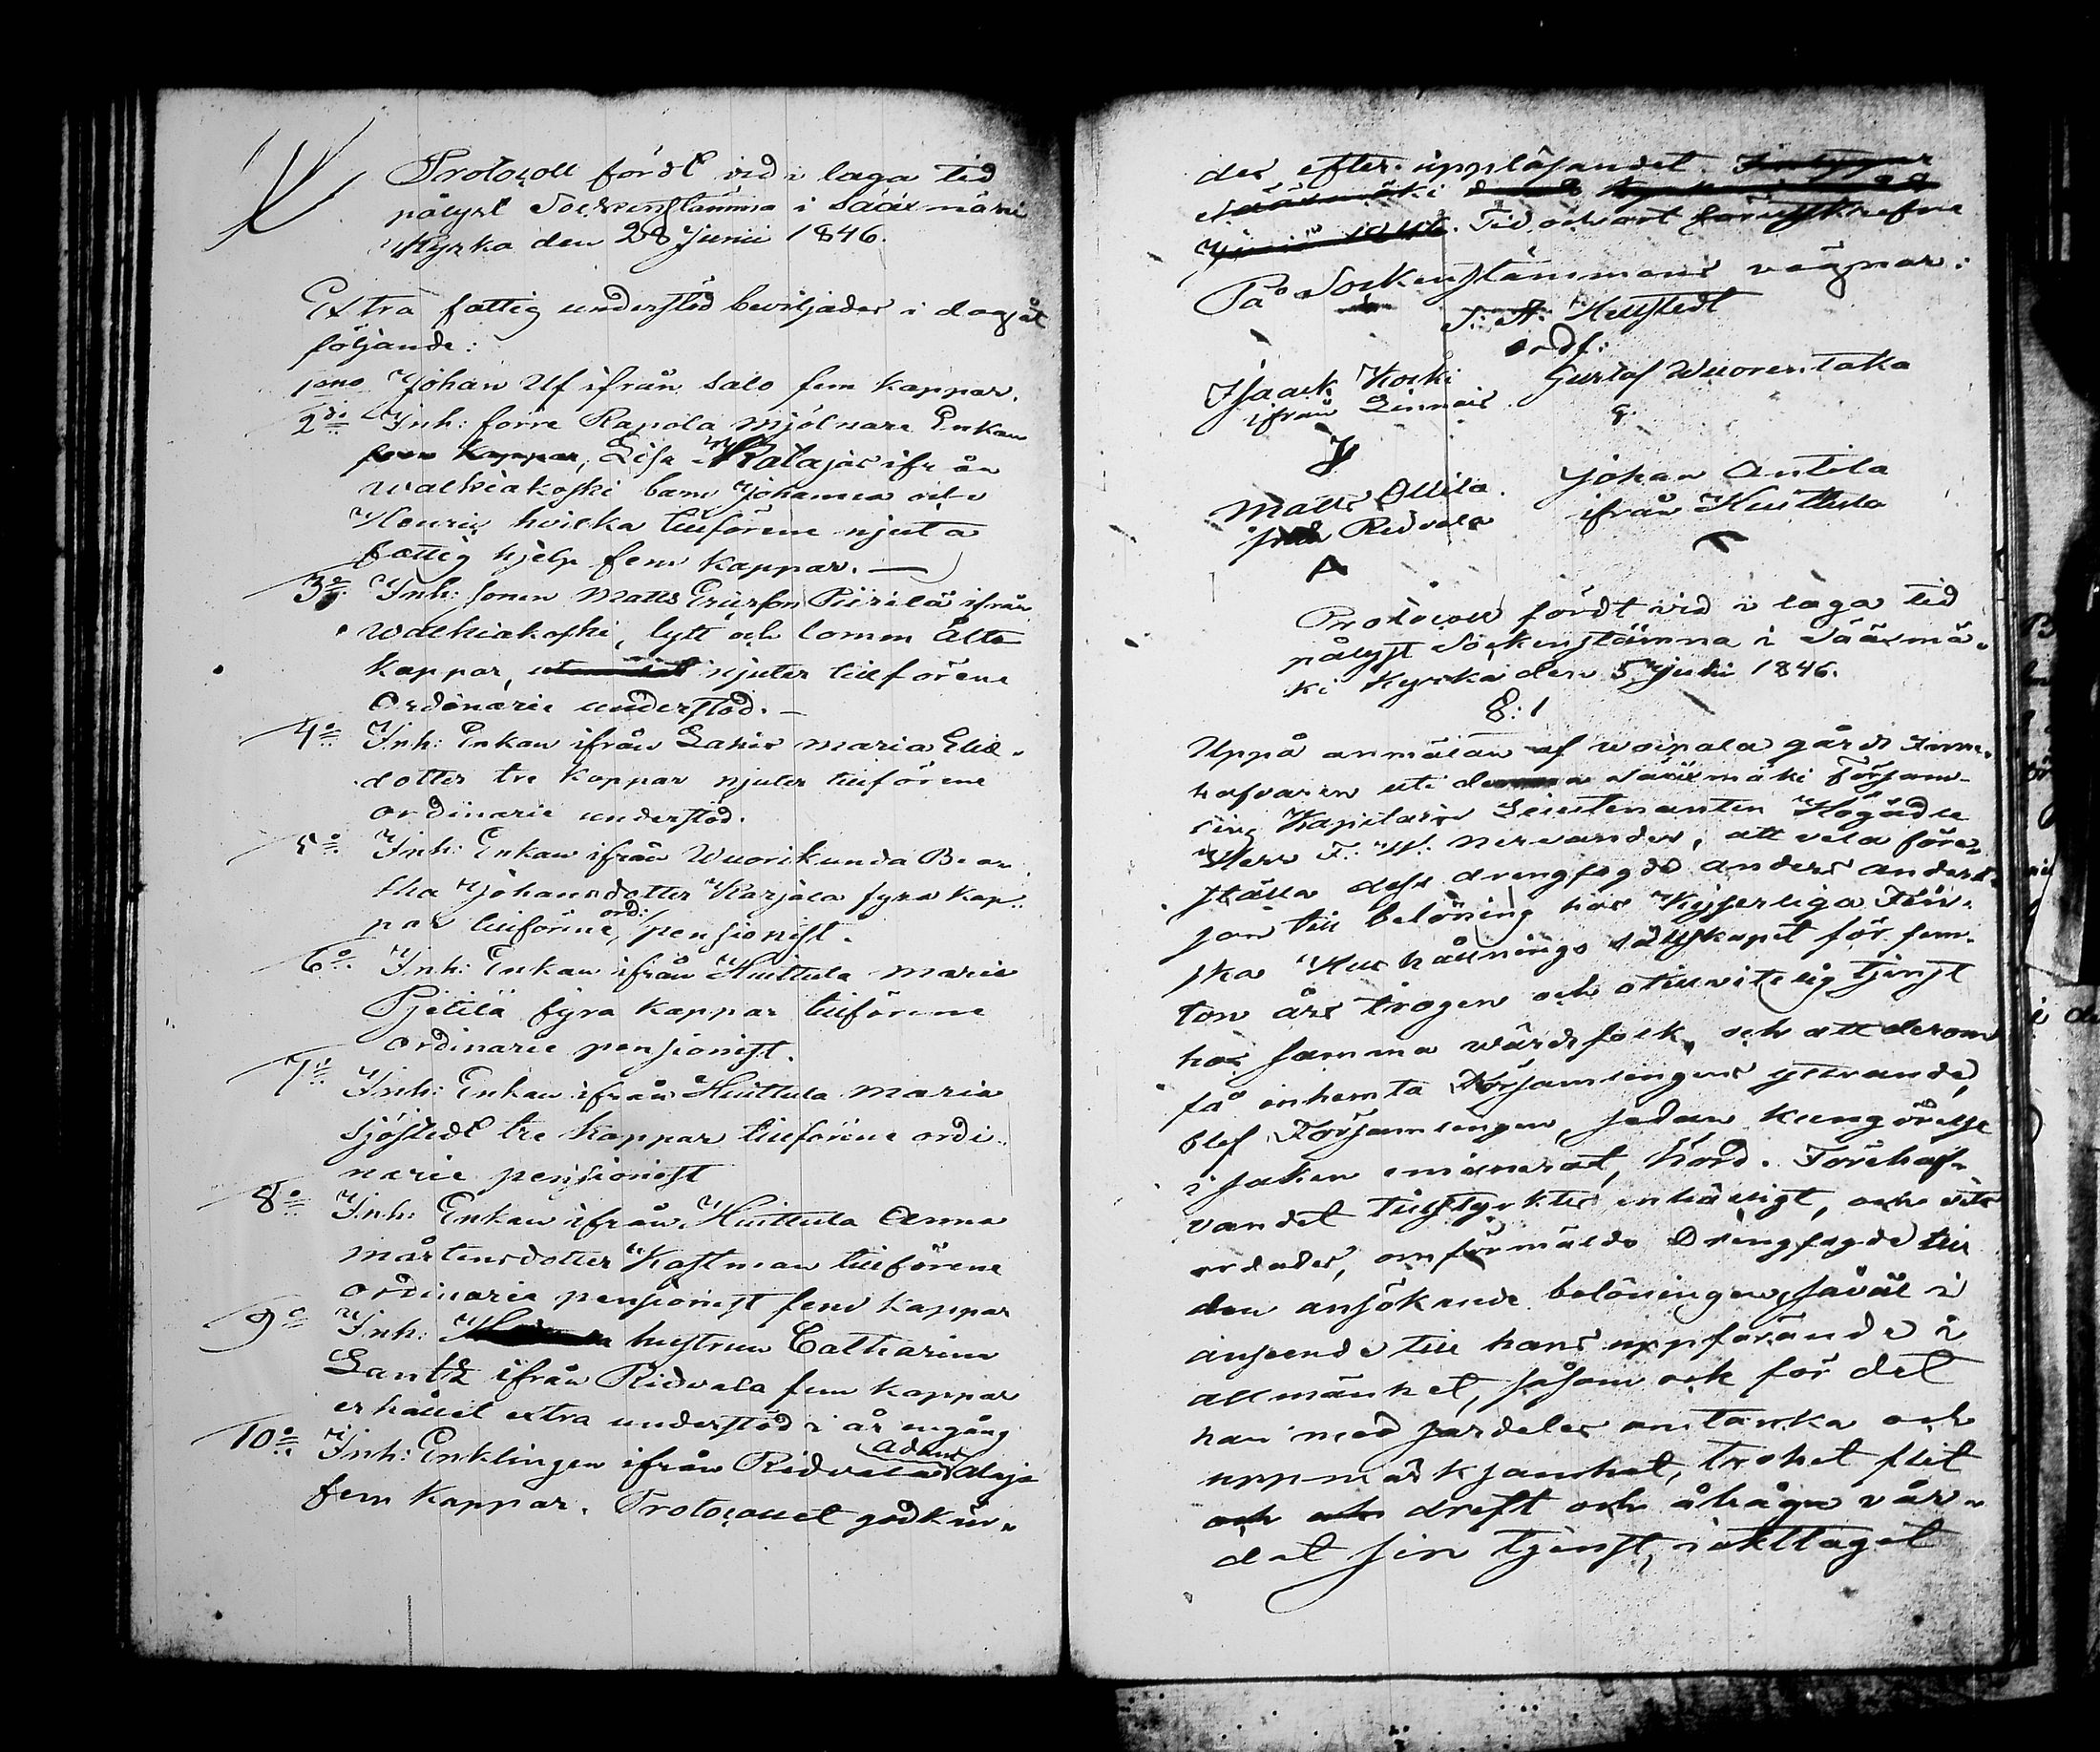 Protocoll fördt vid i laga tid
pålyst Sockenstämma i Sääxmäki
Kyrka den 28 Junii 1846.
Extra fattig understöd beviljades i dag åt
följande:
1mo Johan Ulf ifrån Salo fem kappar.
2do Inh: förre Rapola mjölnare Enkan
fem kappar, Lisa Ratajas ifrån
Walkiakoski barn Johanna och
Henric hvilka tillförene njuta
fattig hjelp fem kappar. —
3o Inh: sonen Matts Ericsson Piirilä ifrån
Walkiakoski, lytt och lomm Åtta
kappar, njuter tillförene
Ordinarie understöd. —
4o Inh: Enkan ifrån Lahis Maria Elis-
dotter tre kappar njuter tillförene
ordinarie understöd.
5o Inh: Enkan ifrån Wuorikunda Bea-
tha Johansdotter Karjala fyra kap-
par tillförene ord: pensionist.
6o Inh: Enkan ifrån Huittula Maria
Pjetilä fyra kappar tillförene
ordinarie pensionist.
7o Inh: Enkan ifrån Huittula Maria
Sjöstedt tre kappar tillförene ordi-
narie pensionist
8o Inh: Enkan ifrån Huittula Anna
Mårtensdotter Kastman tillförene
ordinarie pensionist fem kappar
9o Inh: hustrun Catharina
Lantz ifrån Ridvala fem kappar
erhållit extra understöd i år engång
10o Inh: Enklingen ifrån Ridvala Adam Alaja
fem kappar. Protocollet godkän-
des efter uppläsandet.
Sääxmäki
Junii 1846. Tid och ort förutskrefne
På Sockenstämmans vägnar:
J: A: Hellstedt
ordf:
Isaack Koski
ifrån Linnais
Gustaf Wuorentaka
Matts Ollila
från Ridvala
Johan Antila
ifrån Huittula
Protocoll fördt vid i laga tid
pålyst Sockenstämma i Sääxmä-
ki Kyrka den 5 Julii 1846.
§: 1
Uppå anmälan af Woipala gårds Inne-
hafvaren uti denna Sääxmäki Försam-
ling Kapitaine Leiutenanten Högädle
Herr F: W: Nervander, att vela före-
ställa dess drengfogde Anders Anders-
son till belöning hos Kejserliga Fin-
ska Hushållnings sällskapet för fem-
ton års trogen och otillvitelig tjenst
hos samma wårdsfolk, och att derom
få inhemta Församlingens yttrande,
blef Församlingen, sedan kungörelse
i saken emanerat, hörd. Förehaf-
vandet tillstyrktes enhälligt, och vits-
ordades, omförmälde Drengfogde till
den ansökande belöningen, såväl i
anseende till hans uppförande i
allmänhet, såsom ock för det
han med serdeles omtanka och
uppmärksamhet, trohet flit
och drift och åhåga vår-
dat sin tjenst, iakttagit